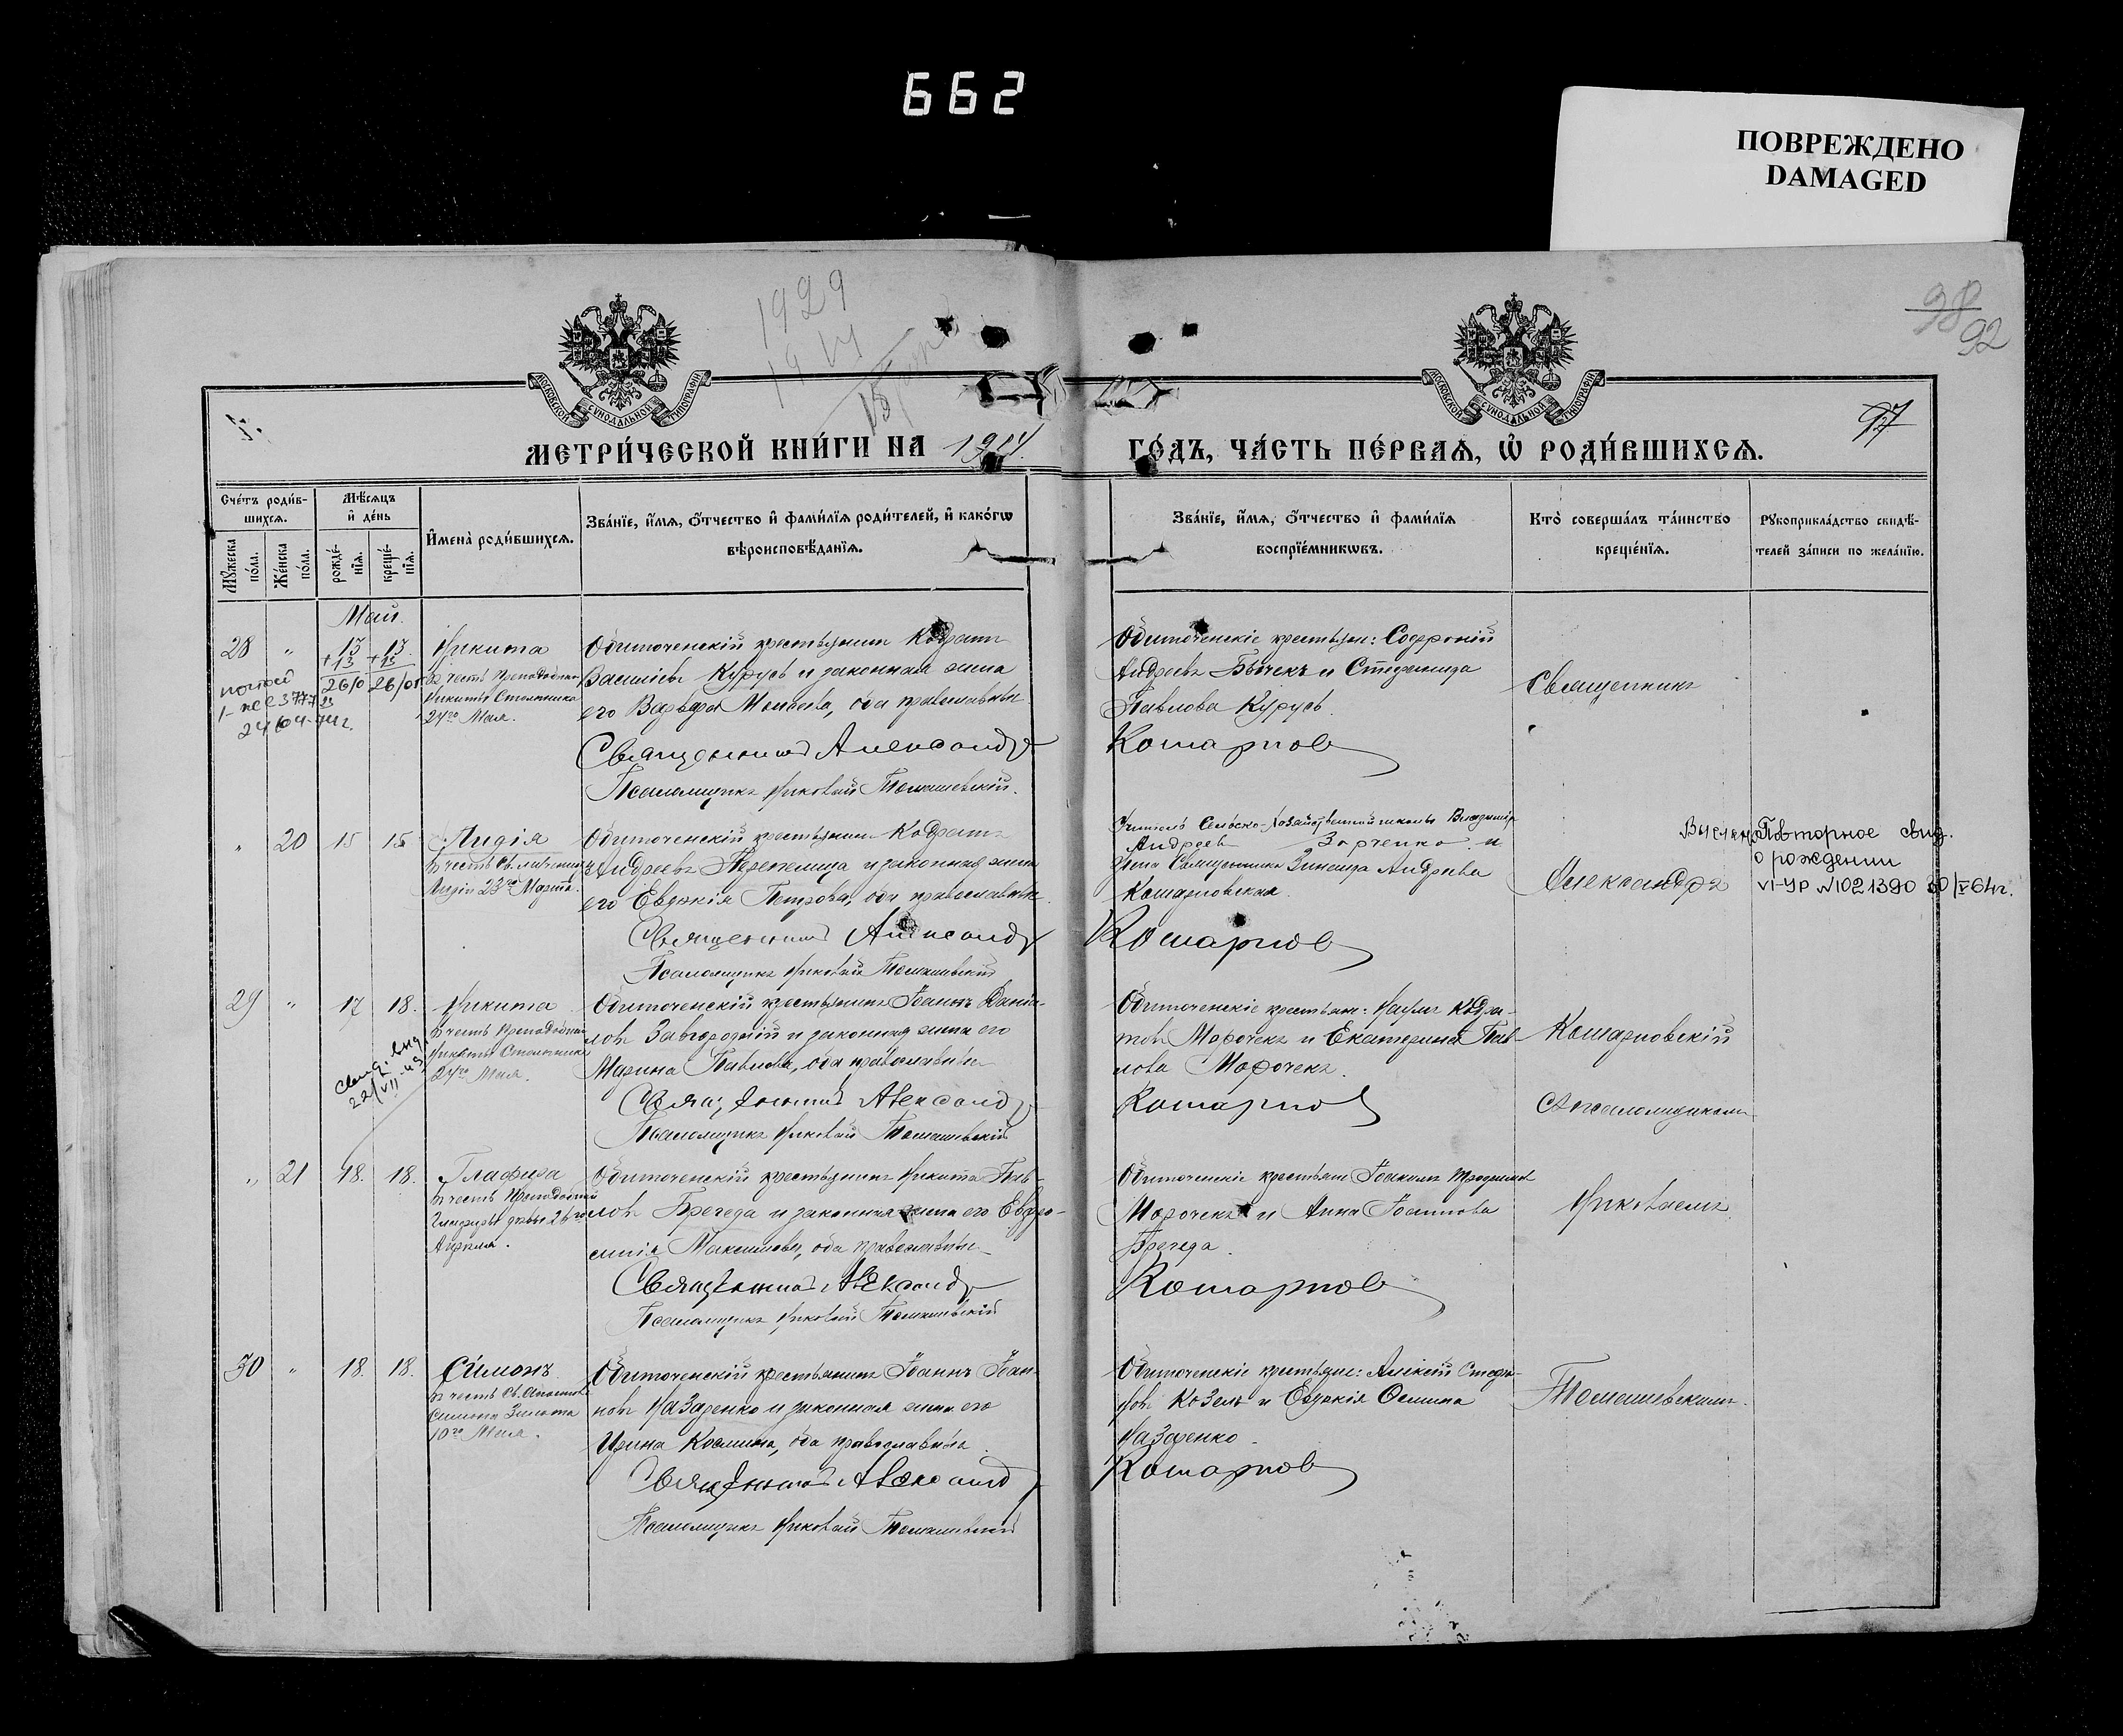 662
ПОВРЕЖДЕНО
DAMAGED
1929
38
92
97
МОСКОВСКОЙ СѴНОДАЛЬНОЙ ТИПОГРАФІИ
МОСКОВСКОЙ СѴНОДАЛЬНОЙ ТИПОГРАФІИ
МЕТРИ́ЧЕСКОЙ КНИ́ГИ НА 1914 ГО́ДЪ, ЧА́СТЬ ПЕ́РВАѦ, Ѡ҆ РОДИ́ВШИХСѦ.
Сче́тъ роди́в-
шихсѧ.
Мѹ́жеска по́ла.
Же́нска по́ла.
Мѣ́сѧцъ и҆ де́нь
рожде́-нїѧ.
креще́-нїѧ.
И҆мена̀ роди́вшихсѧ.
Зва́нїе, и҆́мѧ, ѻ҆́тчество и҆ фами́лїѧ роди́телей, и҆ како́гѡ
вѣроисповѣ́данїѧ.
Зва́нїе, и҆́мѧ, ѻ҆́тчество и҆ фами́лїѧ
воспрїе́мникѡвъ.
Кто̀ соверша́лъ та́инство
креще́нїѧ.
Рѹкоприкла́дство свидѣ́-
телей за́писи по жела́нїю.
Май.
28 " 13 13. Никита
+13 +13
26/0 26/05
въ честь Преподобнаго
Никиты Столпника
24го Мая.
Обиточенскій крестьянинъ Кодратъ
Василіевъ Курусь и законная жена
его Варвара Моисеева, оба православные
Священникъ Александр
Псаломщикъ Николай Томашевскій.
Обиточенскіе крестьяне: Софроній
Андреевъ Бычекъ и Стефанида
Павлова Курусь.
Кошарнов
Священникъ
" 20 15 15 Лидія
въ честь Св. мученицы
Лидіи 23го Марта.
Обиточенскій крестьянинъ Кодратъ
Андреевъ Перепелица и законная жена
его Евдокія Петрова, оба православные.
Священникъ Александр
Псаломщикъ Николай Томашевскій
Учитель Сельско-хозяйственной школы Владиміръ
Андреевъ Зарченко и
жена Священника Зинаида Андреева
Кошарновская.
Кошарнов
Александръ
Повторное свид.
о рождении
VI-УР №1021390 30/V-64г.
29 " 17 18. Никита
въ честь Преподобнаго
Никиты Столпника
24го Мая.
свид. выд.
22/VII-43
Обиточенскій крестьянинъ Іоаннъ Даніи-
ловъ Завгородній и законная жена его
Марина Павлова, оба православные
Священникъ Александр
Псаломщикъ Николай Томашевскій
Обиточенскіе крестьяне: Наумъ Кодра-
товъ Морочекъ и Екатерина Пав-
лова Морочекъ.
Кошарнов
Кошарновскій
съ псаломщикомъ
" 21 18. 18. Глафира
въ честь Преподобной
Глафиры девы 26го
Апреля.
Обиточенскій крестьянинъ Никита Пав-
ловъ Брегеда и законная жена его Евфро-
синія Максимова, оба православные
Священникъ Александр
Псаломщикъ Николай Томашевскій
Обиточенскіе крестьяне Іоакимъ Трофимовъ
Морочекъ и Анна Іоаннова
Брегеда.
Кошарнов
Николаемъ
30 " 18. 18. Симонъ
въ честь Св. Апостола
Симона Зилота
10го Мая.
Обиточенскій крестьянинъ Іоаннъ Іоан-
новъ Назаренко и законная жена его
Ирина Космина, оба православные.
Священникъ Александр
Псаломщикъ Николай Томашевскій
Обиточенскіе крестьяне: Алексѣй Стефа-
новъ Козелъ и Евдокія Осипова
Назаренко
Кошарнов
Томашевскимъ.